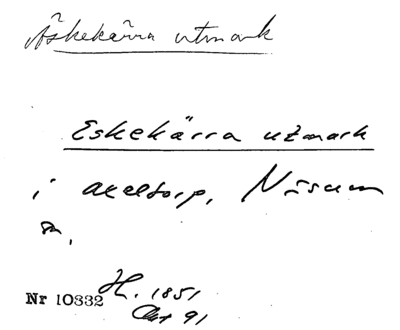 Äskekärra utmark
Eskekärra utmark
i Axeltorp, Näsum
sn.
Nr 10332 H. 1851
Akt 91